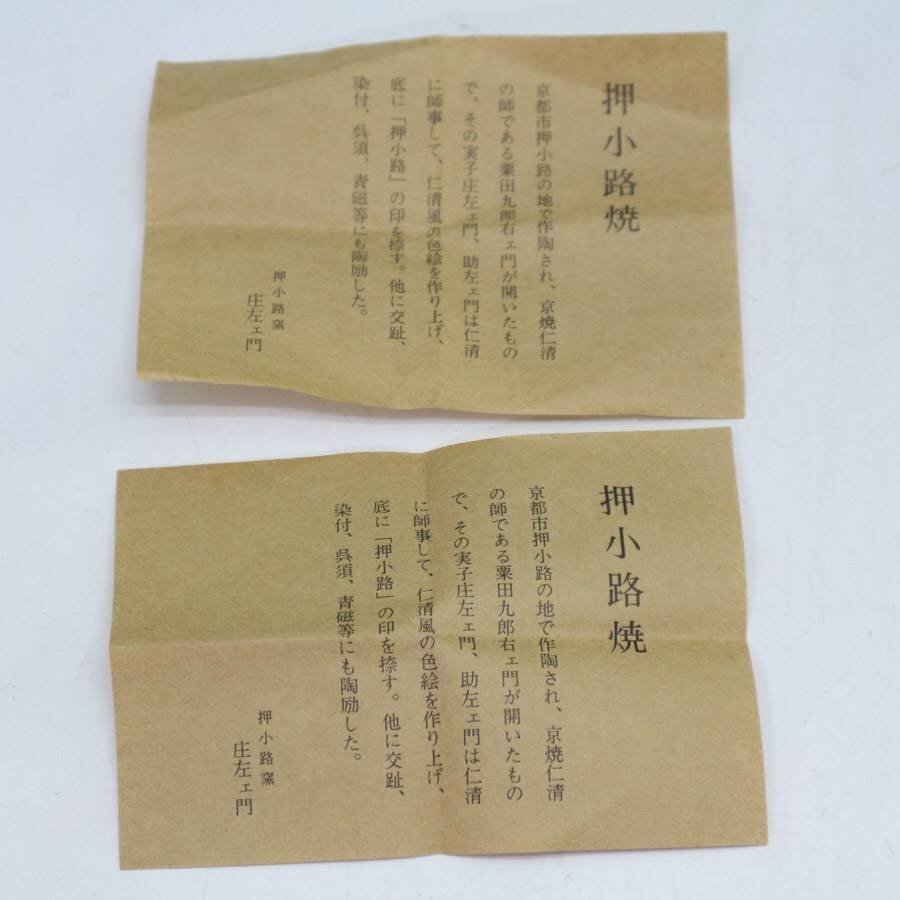 押小路焼
京都市押小路の地で作陶され、京焼仁清
の師である粟田九郎右ェ門が開いたもの
で、その実子庄左ェ門、助左ェ門は仁清
に師事して、仁清風の色絵を作り上げ、
底に「押小路」の印を捺す。他に交趾、
染付、呉須、青磁等にも陶励した。
押小路窯
庄左ェ門
押小路焼
京都市押小路の地で作陶され、京焼仁清
の師である粟田九郎右ェ門が開いたもの
で、その実子庄左ェ門、助左ェ門は仁清
に師事して、仁清風の色絵を作り上げ、
底に「押小路」の印を捺す。他に交趾、
染付、呉須、青磁等にも陶励した。
押小路窯
庄左ェ門